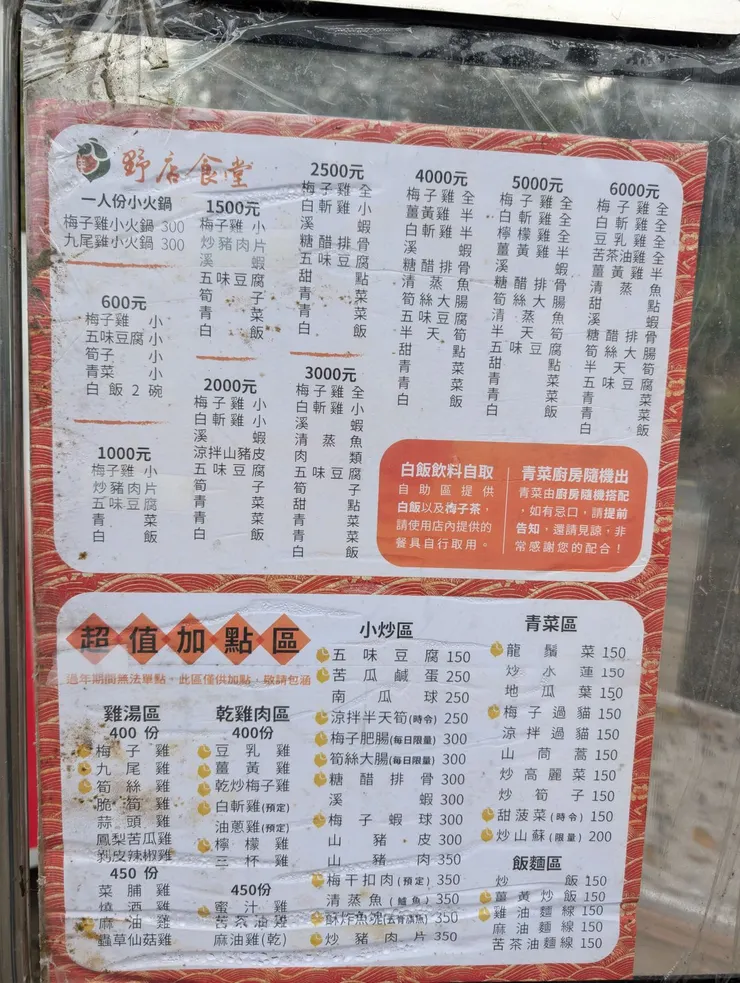 野店食堂
一人份小火鍋
梅子雞小火鍋 300
九尾雞小火鍋 300
600元
梅子雞 小
五味豆腐 小
筍子 小
青菜 小
白飯2碗
1000元
梅子雞 小
炒豬肉片
五味豆腐
青菜
白飯
1500元
梅子雞 小
炒豬肉片
溪蝦
五味豆腐
筍子
青菜
白飯
2000元
梅子雞 小
白斬雞 小
溪蝦
涼拌山豬皮
五味豆腐
筍子
青菜
青菜
白飯
2500元
梅子雞 全
白斬雞 小
溪蝦
糖醋排骨
五味豆腐
甜點
青菜
青菜
白飯
3000元
梅子雞 全
白斬雞 小
溪蝦
清蒸魚
肉類
五味豆腐
筍子
甜點
青菜
青菜
白飯
4000元
梅子雞 全
薑黃雞 半
白斬雞 半
溪蝦
糖醋排骨
清蒸魚
筍絲大腸
五味豆腐
半天筍
甜點
青菜
青菜
白飯
5000元
梅子雞 全
白斬雞 全
檸檬雞 全
薑黃雞 全
溪蝦
糖醋排骨
筍絲大腸
清蒸魚
半天筍
五味豆腐
甜點
青菜
青菜
白飯
6000元
梅子雞 全
白斬雞 全
豆乳雞 全
苦茶油雞 全
薑黃雞 半
清蒸魚
甜點
溪蝦
糖醋排骨
筍絲大腸
半天筍
五味豆腐
青菜
青菜
白飯
白飯飲料自取
自助區提供
白飯以及梅子茶,
請使用店內提供的
餐具自行取用。
青菜廚房隨機出
青菜由廚房隨機搭配
,如有忌口,請提前
告知,還請見諒,非
常感謝您的配合!
超值加點區
過年期間無法單點,此區僅供加點,敬請包涵
雞湯區
400 份
梅子雞
九尾雞
筍絲雞
脆筍雞
蒜頭雞
鳳梨苦瓜雞
剝皮辣椒雞
450 份
菜脯雞
燒酒雞
麻油雞
蟲草仙菇雞
乾雞肉區
400份
豆乳雞
薑黃雞
乾炒梅子雞
白斬雞(預定)
油蔥雞(預定)
檸檬雞
三杯雞
450份
蜜汁雞
苦茶油雞
麻油雞(乾)
小炒區
五味豆腐 150
苦瓜鹹蛋 250
南瓜球 250
涼拌半天筍(時令) 250
梅子肥腸(每日限量) 300
筍絲大腸(每日限量) 300
糖醋排骨 300
溪蝦 300
梅子蝦球 300
山豬皮 300
山豬肉 350
梅干扣肉(預定) 350
清蒸魚(鱸魚) 350
酥炸魚塊(去骨旗魚) 350
炒豬肉片 350
青菜區
龍鬚菜 150
炒水蓮 150
地瓜葉 150
梅子過貓 150
涼拌過貓 150
山茼蒿 150
炒高麗菜 150
炒筍子 150
甜菠菜(時令) 150
炒山蘇(限量) 200
飯麵區
炒飯 150
薑黃炒飯 150
雞油麵線 150
麻油麵線 150
苦茶油麵線 150